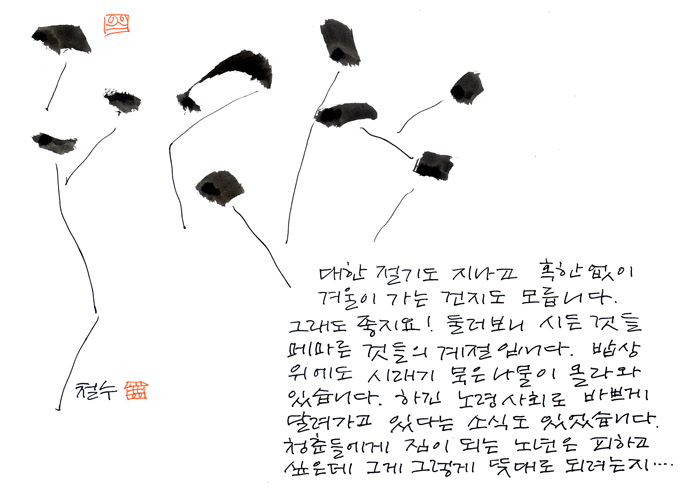 대한 절기도 지나고 혹한 없이
겨울이 가는 건지도 모릅니다.
그래도 좋지요! 둘러보니 시든 것들
메마른 것들의 계절입니다. 밥상
위에도 시래기 묵은나물이 올라와
있습니다. 하긴 노령사회로 바쁘게
달려가고 있다는 소식도 있었습니다.
청춘들에게 짐이 되는 노년은 피하고
싶은데 그게 그렇게 뜻대로 되려는지····
철수